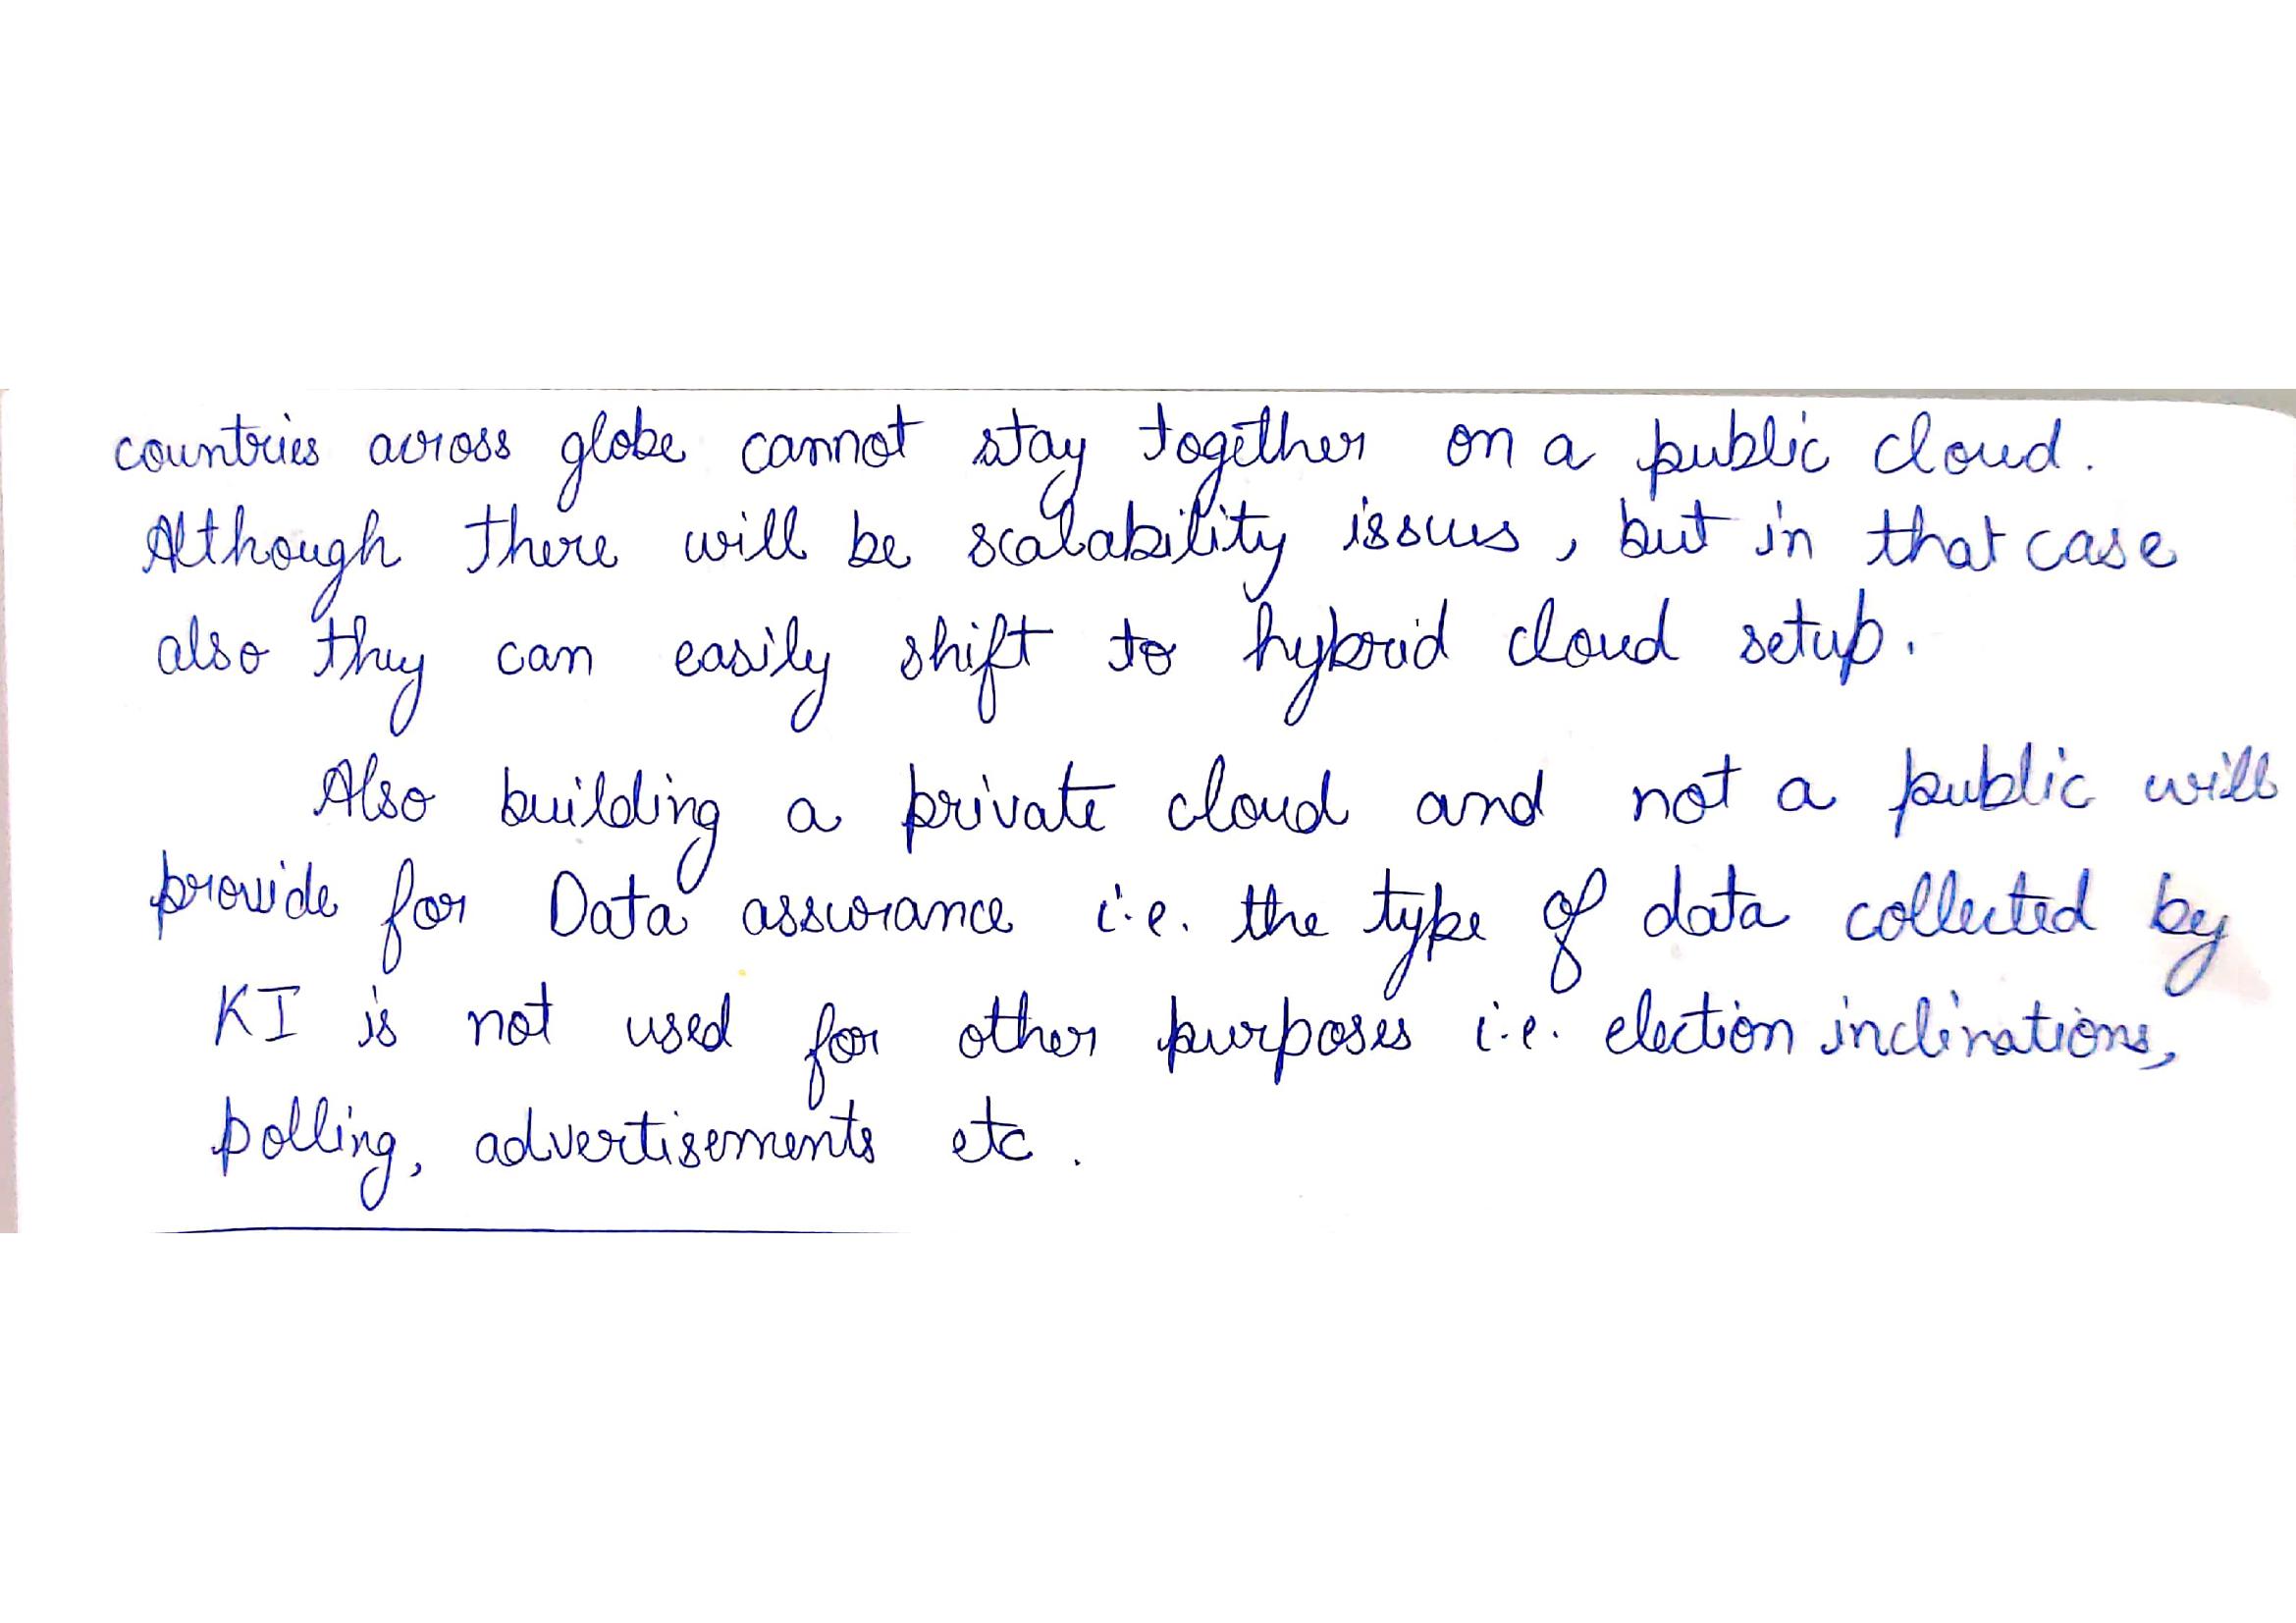 countries across globe cannot stay together on a public cloud.
Although there will be scalability issues, but in that case
also they can easily shift to hybrid cloud setup.
Also building a private cloud and not a public will
provide for Data assurance i.e. the type of data collected by
KI is not used for other purposes i.e. election inclinations,
polling, advertisements etc.